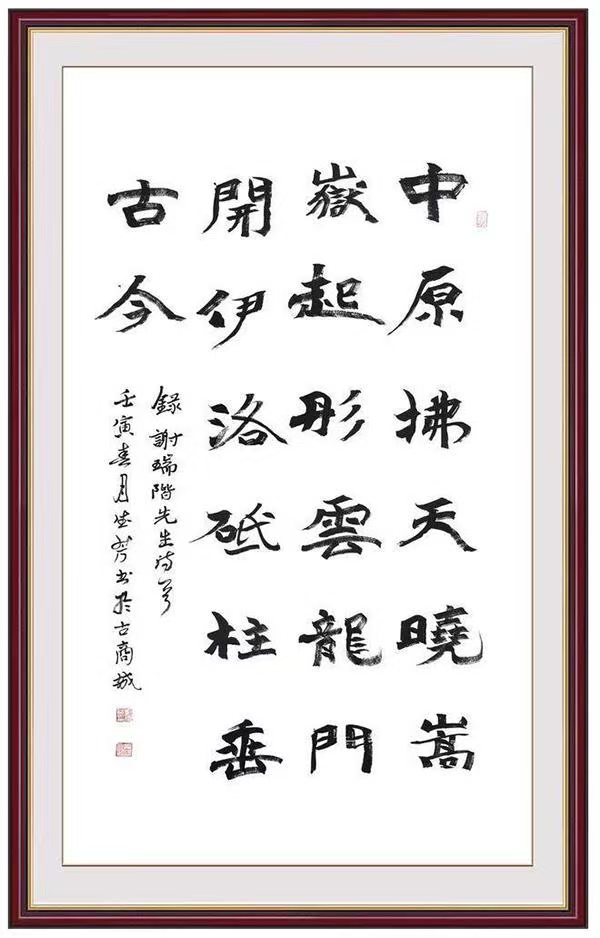 中原拂天曉嵩
嶽起彤雲龍門
開伊洛砥柱垂
古今
錄謝瑞階先生诗
壬寅春月芳书於古商城